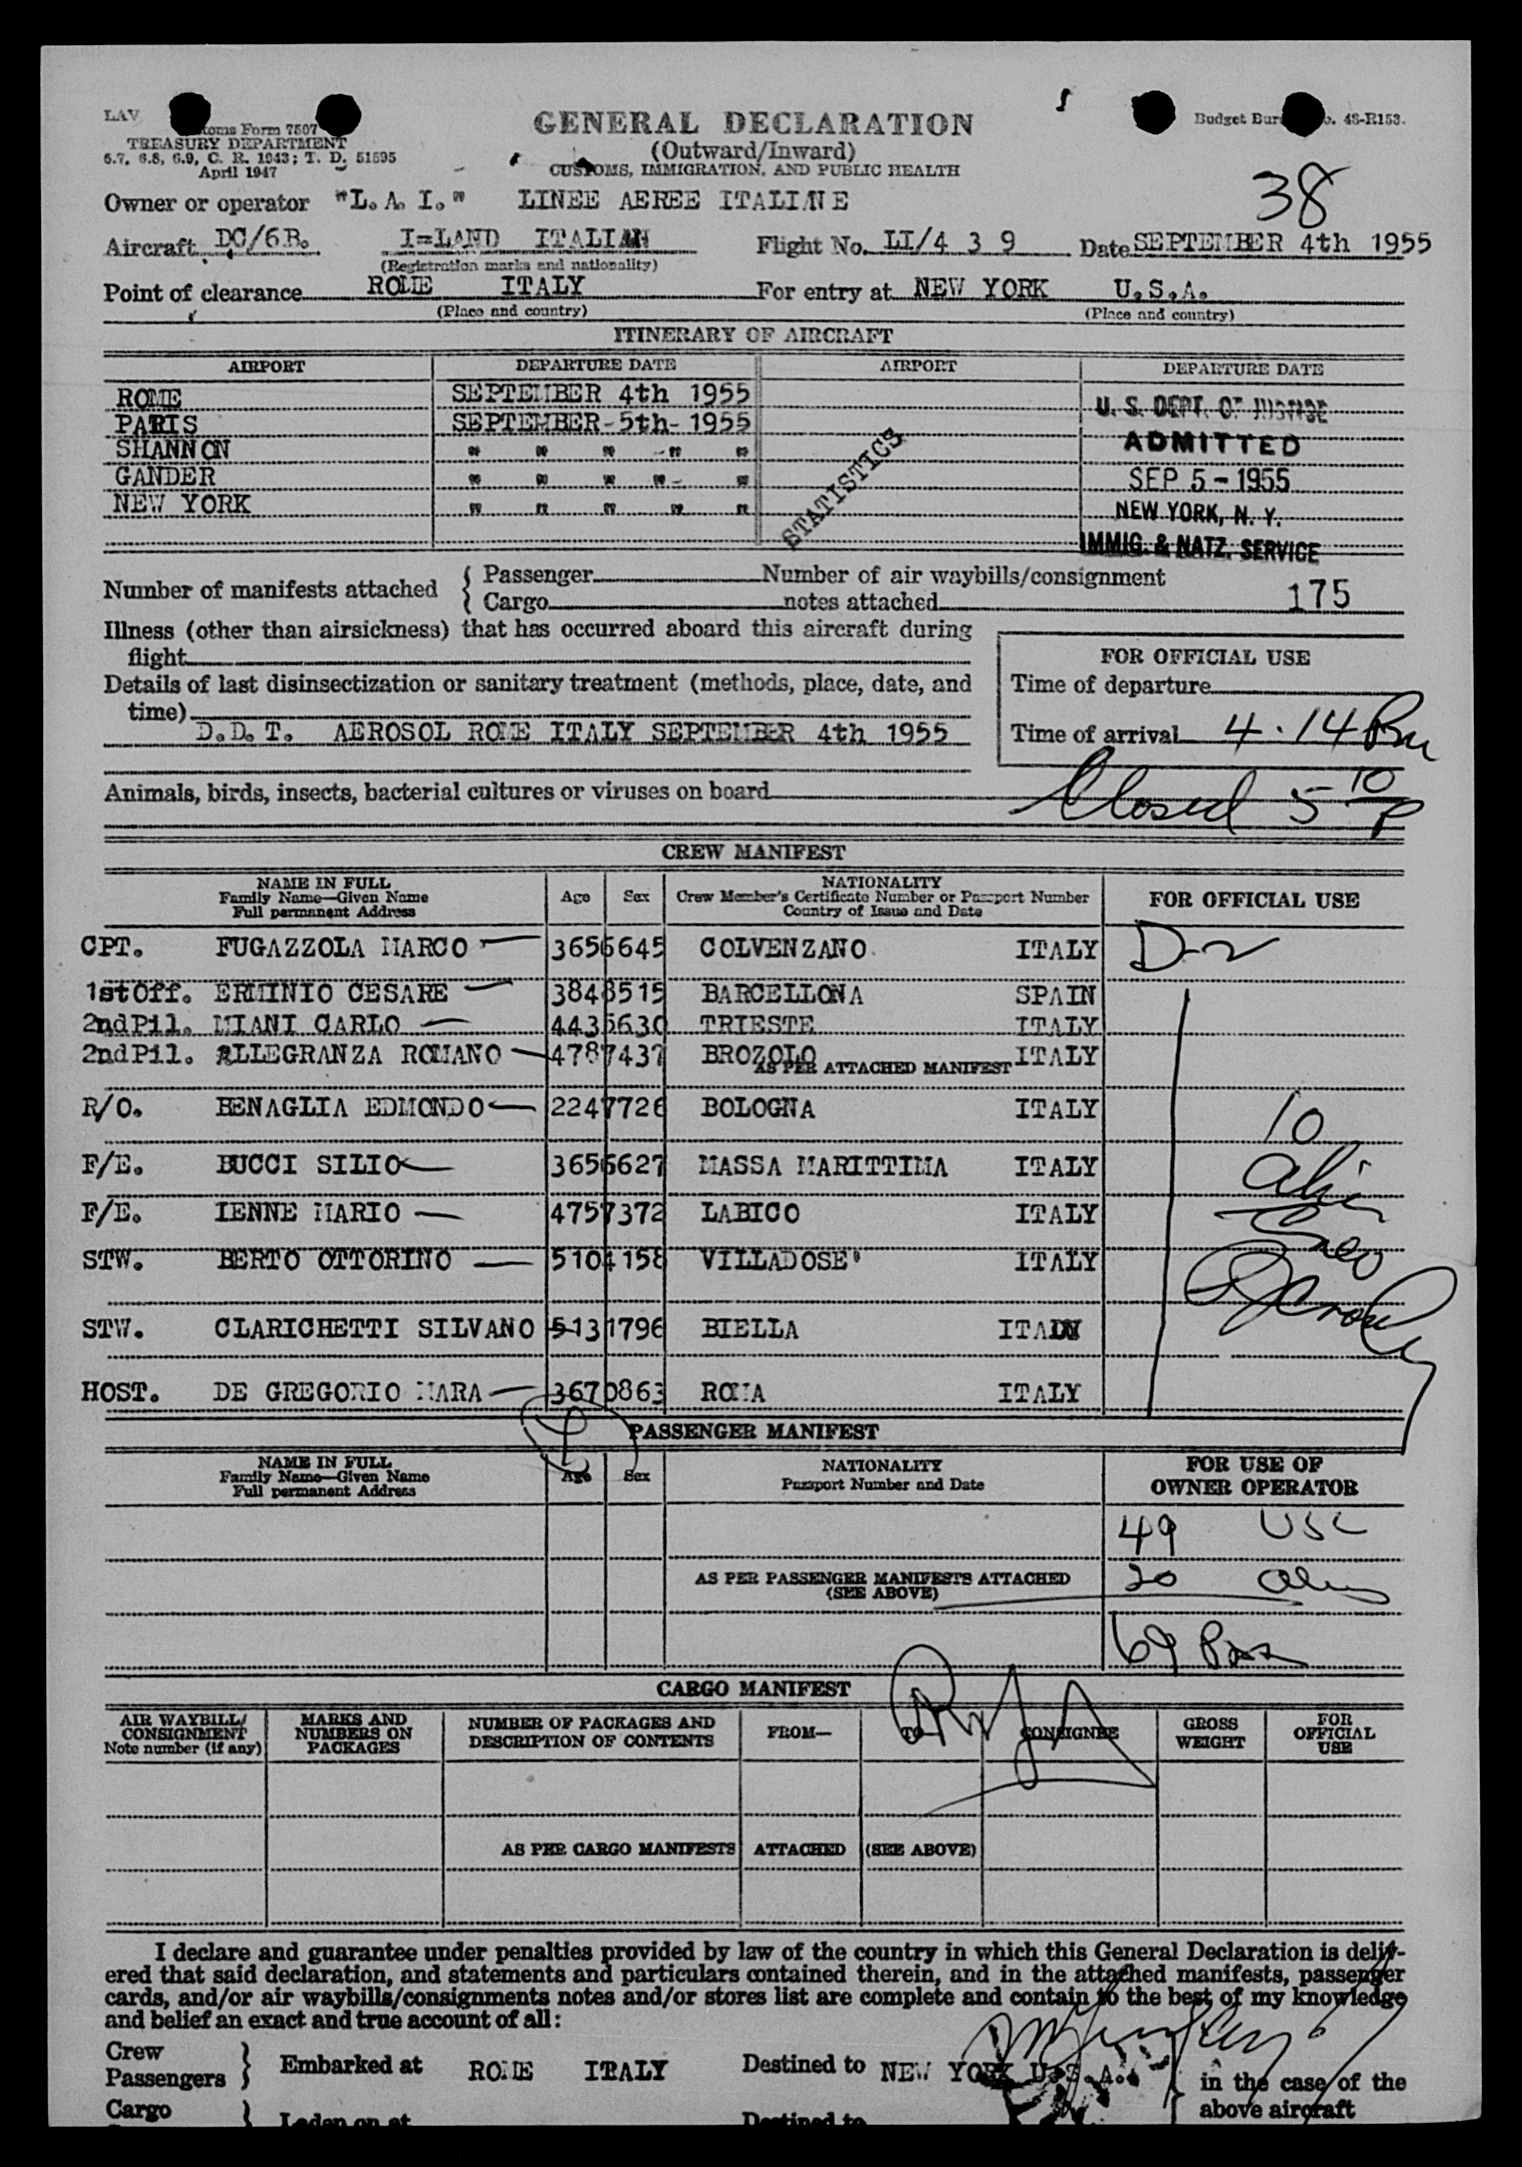 LAV
Customs Form 7507
TREASURY DEPARTMENT
6.7, 6.8, 6.9, C. R. 1943; T. D. 51595
April 1947
GENERAL DECLARATION
(Outward/Inward)
CUSTOMS, IMMIGRATION, AND PUBLIC HEALTH
Budget Bureau No. 48-R153.
38
Owner or operator "L. A. I." LINEE AEREE ITALIANE
Aircraft DC/6B. I=LAND ITALIAN Flight No. LI/4 3 9 Date SEPTEMBER 4th 1955
(Registration marks and nationality)
Point of clearance ROME ITALY For entry at NEW YORK U.S.A.
(Place and country) (Place and country)
ITINERARY OF AIRCRAFT
AIRPORT DEPARTURE DATE AIRPORT DEPARTURE DATE
ROME SEPTEMBER 4th 1955
PARIS SEPTEMBER-5th-1955
SHANNON " " " " "
GANDER " " " " "
NEW YORK " " " " "
STATISTICS
U. S. DEPT. OF JUSTICE
ADMITTED
SEP 5 - 1955
NEW YORK, N. Y.
IMMIG. & NATZ. SERVICE
Number of manifests attached { Passenger Number of air waybills/consignment
Cargo notes attached 175
Illness (other than airsickness) that has occurred aboard this aircraft during
flight
Details of last disinsectization or sanitary treatment (methods, place, date, and
time)
D.D.T. AEROSOL ROME ITALY SEPTEMBER 4th 1955
FOR OFFICIAL USE
Time of departure
Time of arrival 4.14 Pm
Closed 5 10 P
Animals, birds, insects, bacterial cultures or viruses on board
CREW MANIFEST
NAME IN FULL
Family Name—Given Name
Full permanent Address
Age Sex
NATIONALITY
Crew Member's Certificate Number or Passport Number
Country of Issue and Date
FOR OFFICIAL USE
CPT. FUGAZZOLA MARCO 3656645 COLVENZANO. ITALY D-2
1st Off. ERMINIO CESARE 3848515 BARCELLONA SPAIN
2nd Pil. MIANI CARLO 4435630 TRIESTE ITALY
2nd Pil. ALLEGRANZA ROMANO 4787437 BROZOLO ITALY
AS PER ATTACHED MANIFEST
R/O. BENAGLIA EDMONDO 2247726 BOLOGNA ITALY
F/E. BUCCI SILIO 3656627 MASSA MARITTIMA ITALY
F/E. IENNE MARIO 4757372 LABICO ITALY
STW. BERTO OTTORINO 5104158 VILLADOSE' ITALY
STW. CLARICHETTI SILVANO 5131796 BIELLA ITALY
HOST. DE GREGORIO MARA 3670863 ROMA ITALY
10
PASSENGER MANIFEST
NAME IN FULL
Family Name—Given Name
Full permanent Address
Age Sex
NATIONALITY
Passport Number and Date
FOR USE OF
OWNER OPERATOR
49 USC
AS PER PASSENGER MANIFESTS ATTACHED
(SEE ABOVE)
20
69 Pass
CARGO MANIFEST
AIR WAYBILL/
CONSIGNMENT
Note number (if any)
MARKS AND
NUMBERS ON
PACKAGES
NUMBER OF PACKAGES AND
DESCRIPTION OF CONTENTS
FROM— TO— CONSIGNEE
GROSS
WEIGHT
FOR
OFFICIAL
USE
AS PER CARGO MANIFESTS ATTACHED (SEE ABOVE)
I declare and guarantee under penalties provided by law of the country in which this General Declaration is deliv-
ered that said declaration, and statements and particulars contained therein, and in the attached manifests, passenger
cards, and/or air waybills/consignments notes and/or stores list are complete and contain to the best of my knowledge
and belief an exact and true account of all:
Crew
Passengers } Embarked at ROME ITALY Destined to NEW YORK U.S.A. } in the case of the
above aircraft
Cargo } Laden on at Destined to